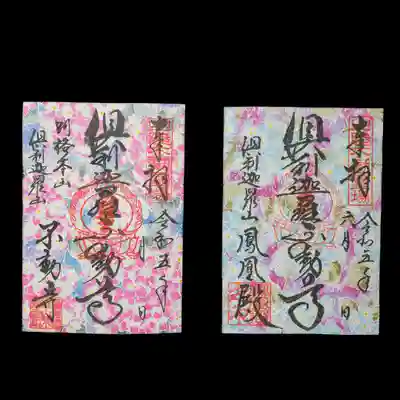 奉拝
令和五年
月 日
倶利迦羅不動尊
別格本山
倶利迦羅山
不動寺
奉拝
令和五年
六月 日
倶利迦羅不動尊
倶利迦羅山
鳳凰殿